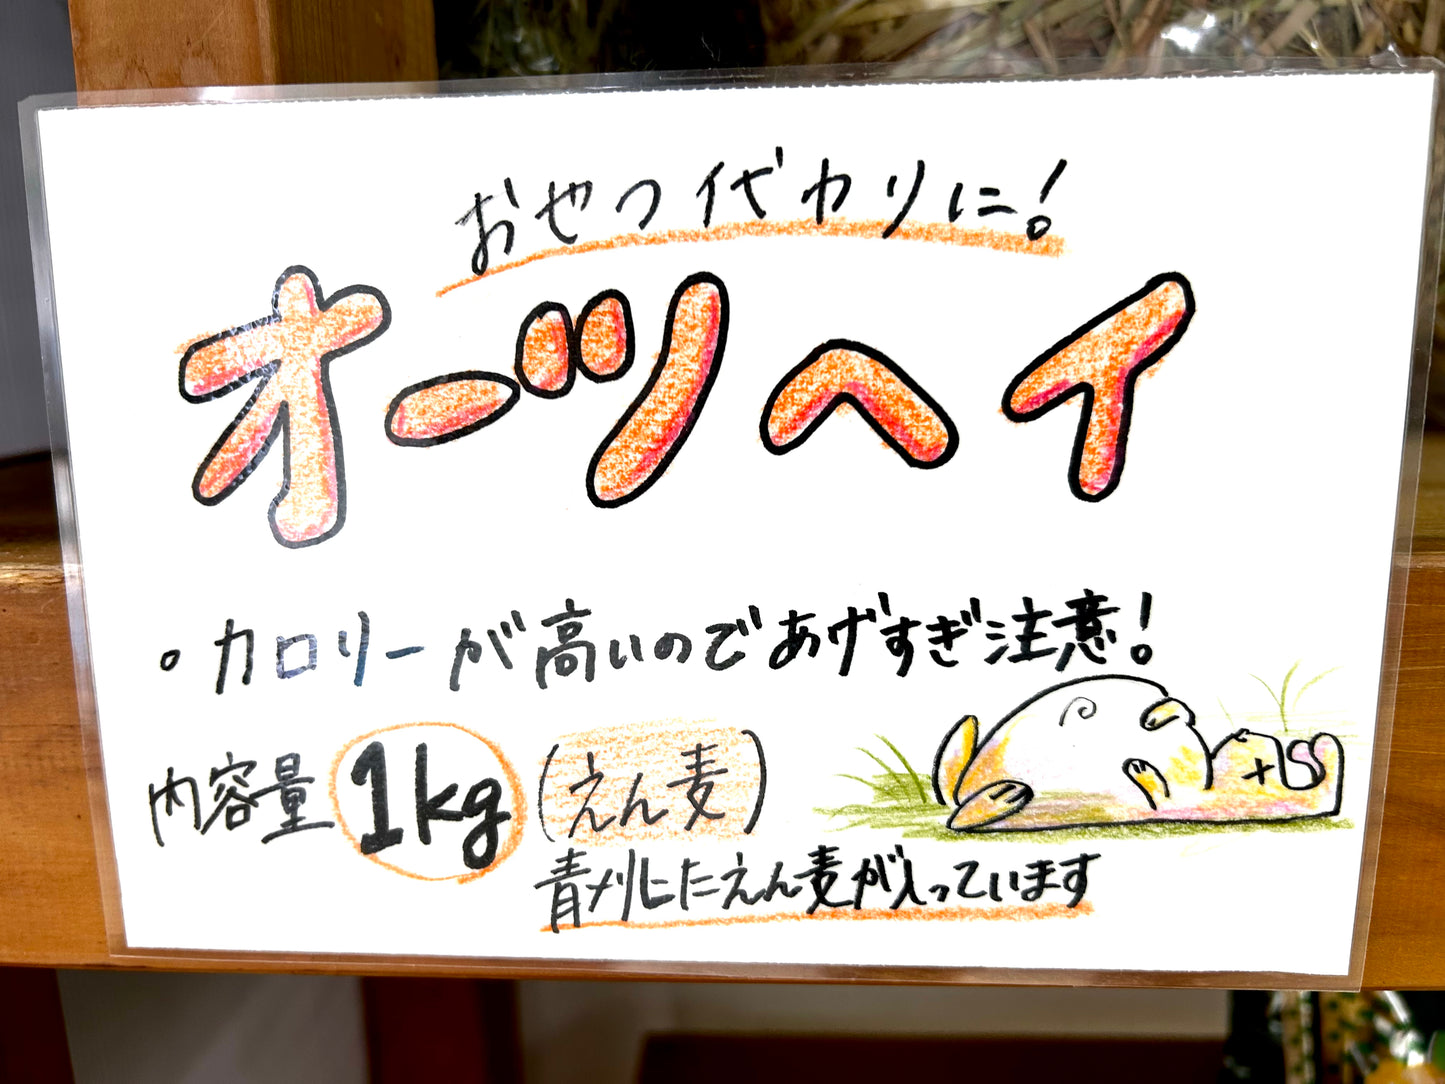 おやつ代わりに!
オーツヘイ
・カロリーが高いのであげすぎ注意!
内容量 1kg (えん麦)
青刈りしたえん麦が入っています